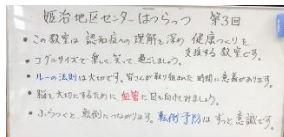 姫治地区センターはつらっつ 第3回
・この教室は認知症への理解を深め 健康づくりを
支援する教室です。
・コグニサイズで楽しく笑って過ごしましょう。
・ルーの法則は大切です。皆さんが取り組まれた時間に意義があります。
・脳を大切にするために血管に目を向けてみましょう。
・ふらつくと転倒につながります。転倒予防はずっと意識です。